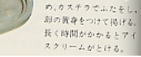 め、カステラでふたをし、
卵の黄身をつけて揚げる。
長く時間がかかるとアイ
スクリームがとける。